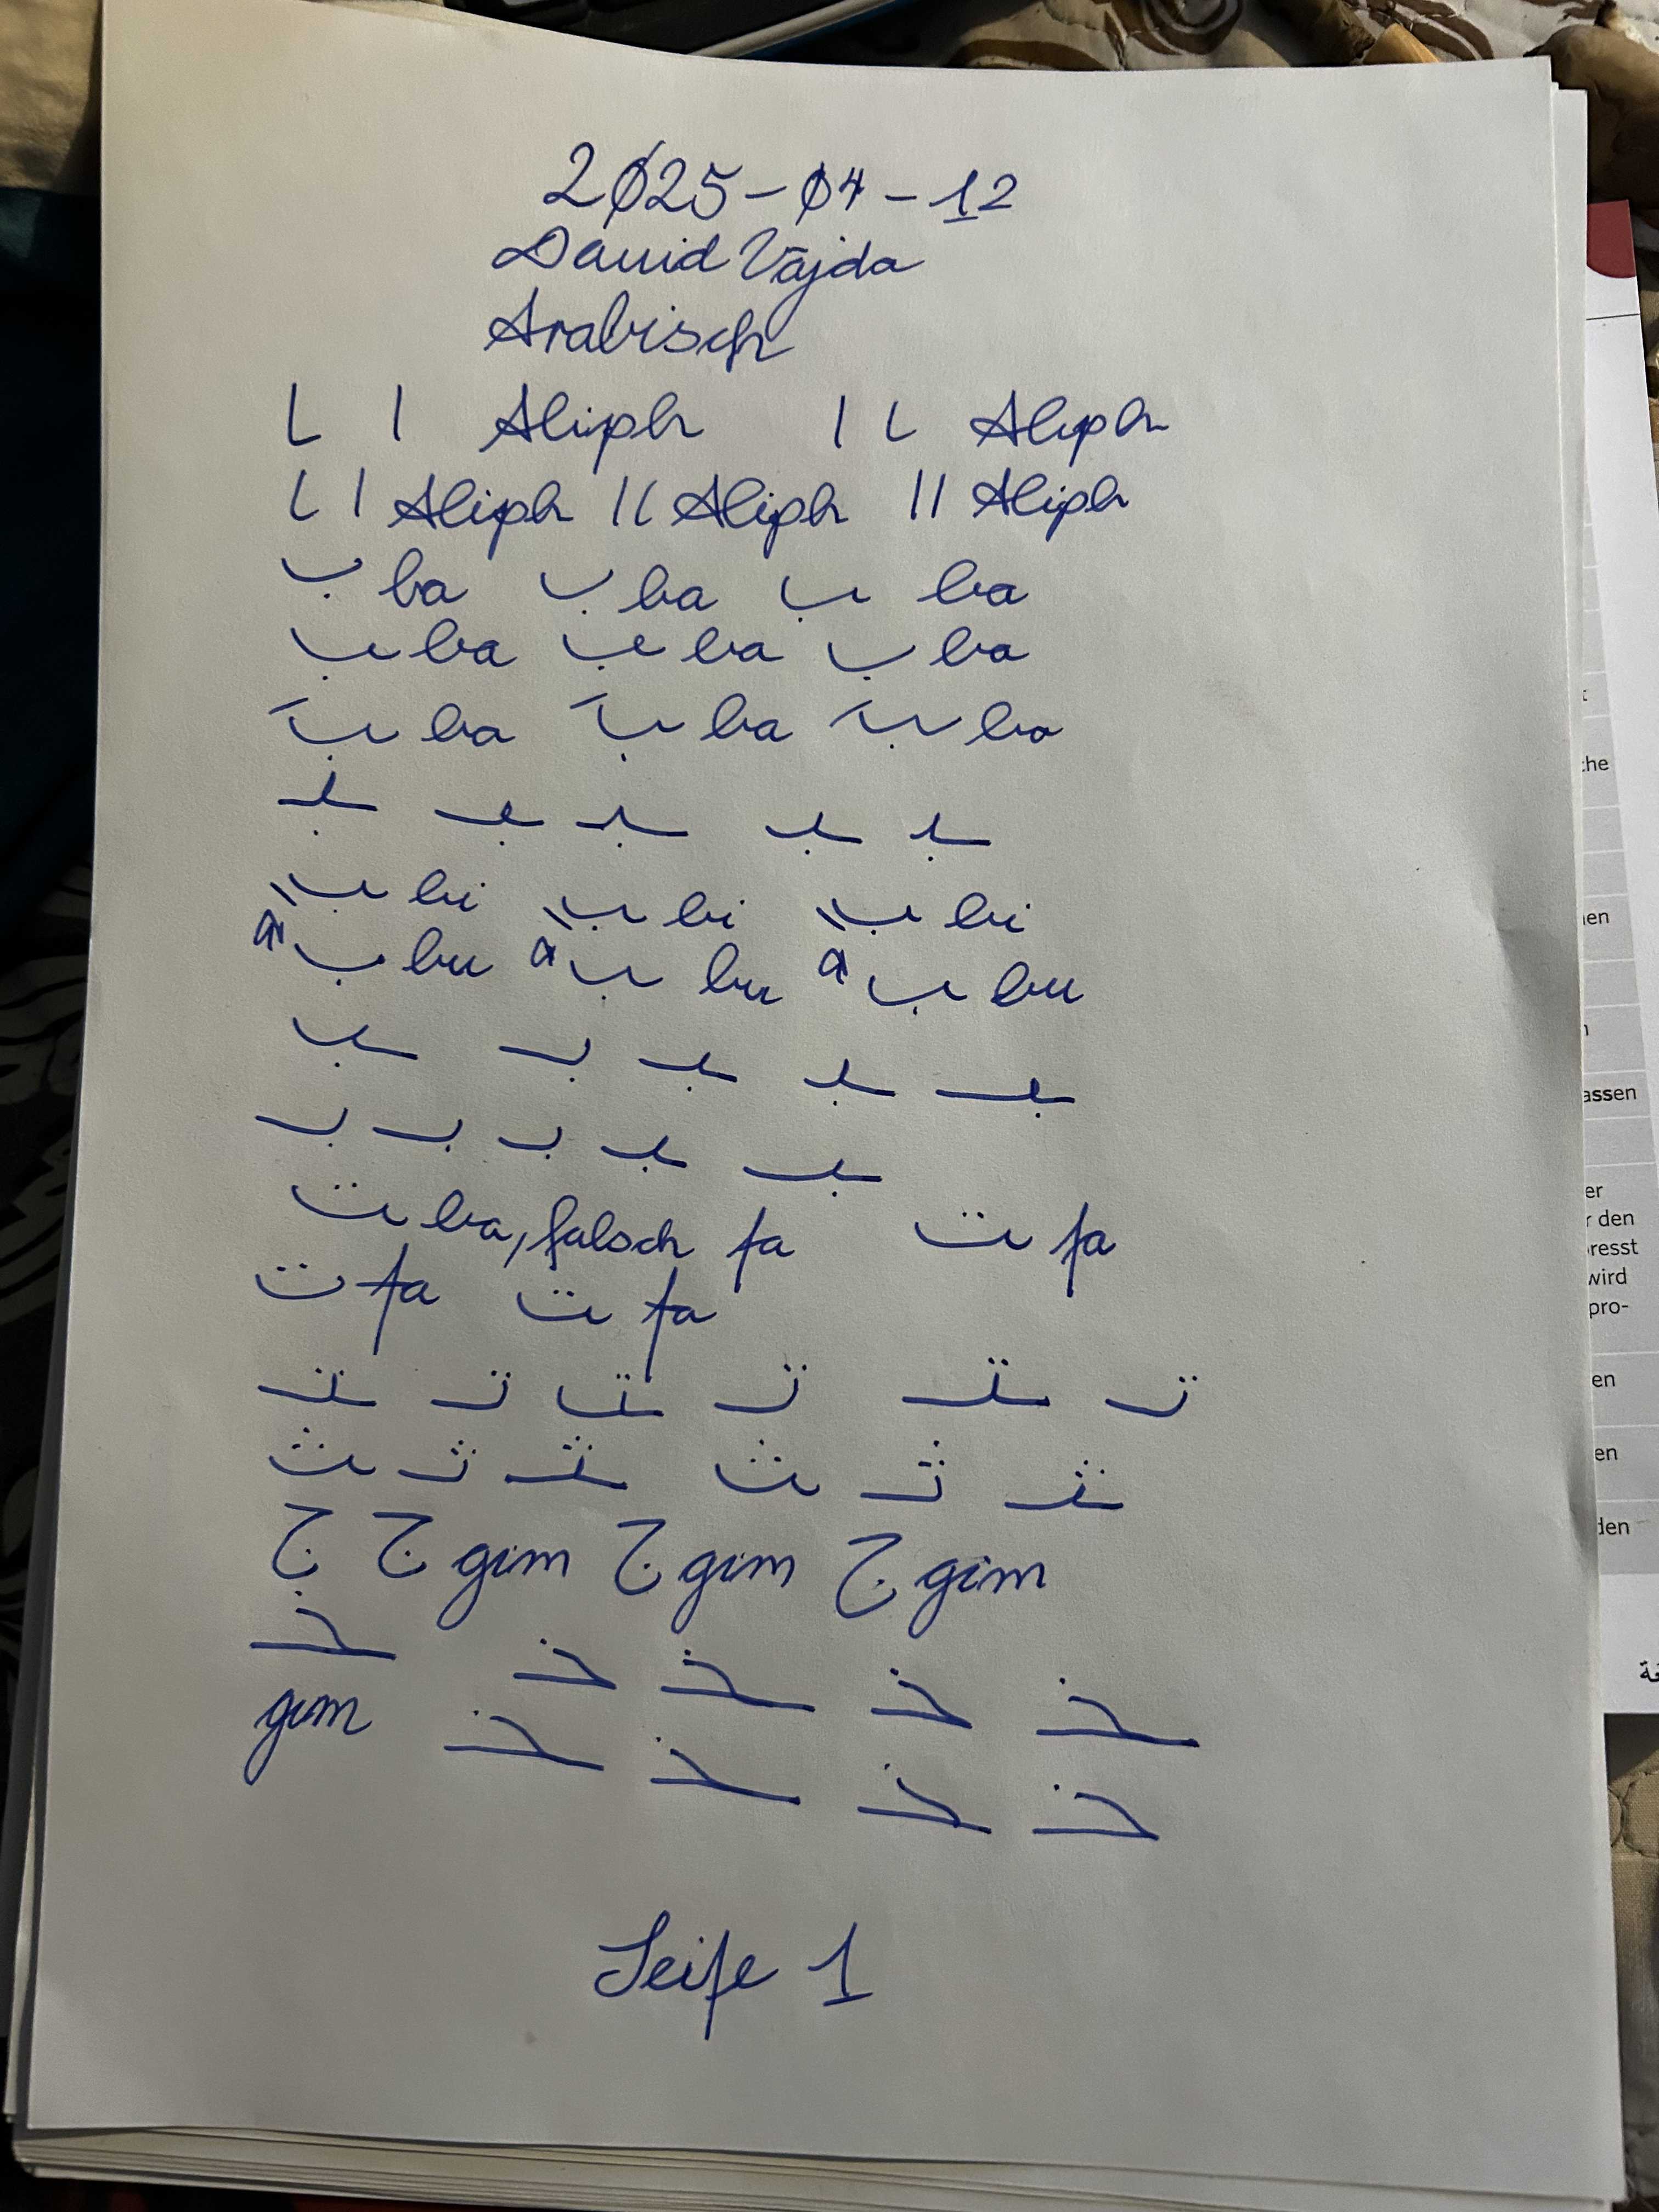 2025-04-12
David Vajda
Arabisch
ا ا Aliph ا ا Aliph
ا ا Aliph ا ا Aliph ا ا Aliph
ب ba ب ba ب ba
ب ba ب ba ب ba
بَ ba بَ ba بَ ba
ـبـ ـبـ ـبـ ـبـ ـبـ
ب bi ب bi ب bi
ب bu ب bu ب bu
ـبـ بـ ـبـ ـبـ ـبـ
بـ بـ بـ ـبـ ـبـ
ت ba, falsch ta ت ta
ت ta ت ta
ـتـ تـ ـتـ تـ ـتـ تـ
ث ثـ ـثـ ث ثـ ـثـ
ج ج gim ج gim ج gim
ـخـ خـ ـخـ خـ ـخـ
gim ـخـ ـخـ ـخـ خـ
Seite 1
:he
ien
assen
er
r den
resst
wird
pro-
en
en
den